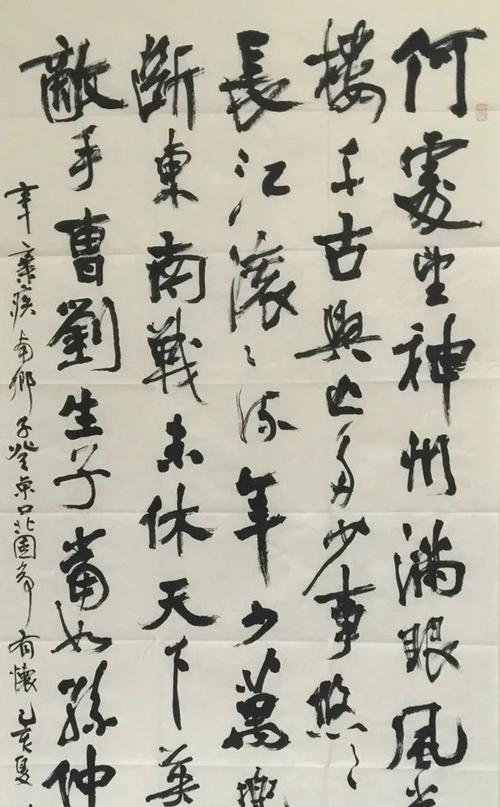 何處望神州滿眼風光
樓千古興亡多少事悠々
長江滾々流年少萬兜
斷東南戰未休天下英
敵手曹劉生子當如孫仲
辛棄疾南鄉子登京口北固亭有懷己亥夏